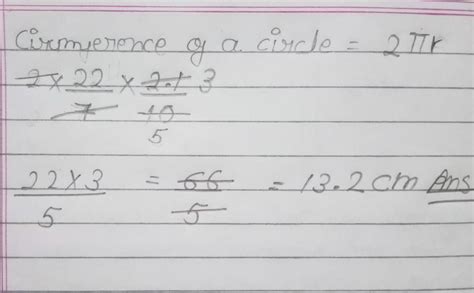 Circumference of a circle = 2πr
2 × 22 × 2.1 3
7 10
5
22 × 3 = 66 = 13.2 cm Ans
5 5